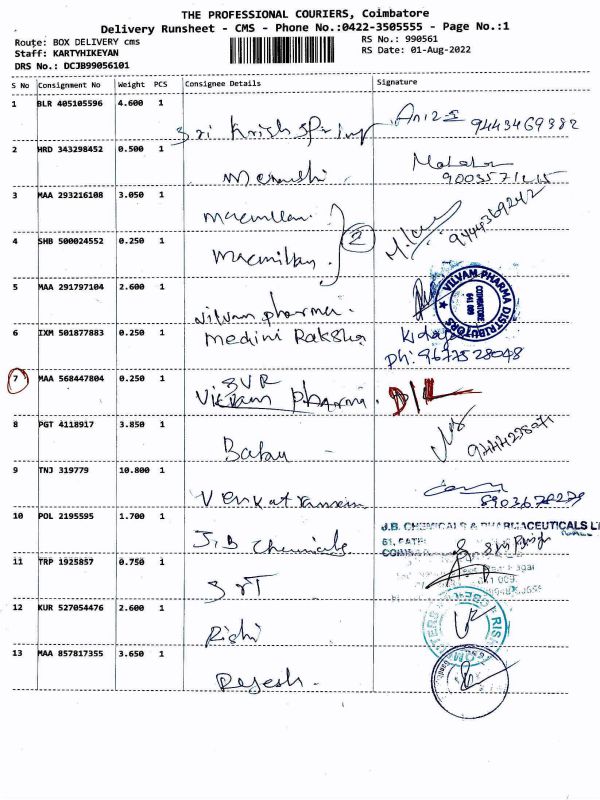 THE PROFESSIONAL COURIERS, Coimbatore
Delivery Runsheet - CMS - Phone No.:0422-3505555 - Page No.:1
Route: BOX DELIVERY cms
RS No.: 990561
Staff: KARTYHIKEYAN
RS Date: 01-Aug-2022
DRS No.: DCJB99056101
S No Consignment No Weight PCS Consignee Details Signature
1 BLR 405105596 4.600 1
Sri Krish Spring 9443469382
2 HRD 343298452 0.500 1
3 MAA 293216108 3.050 1
Macmillan. 9444369242
2
4 SHB 500024552 0.250 1
Macmillan.
5 MAA 291797104 2.600 1
Vilvam pharma.
VILVAM PHARMA DISTRIBUTORS
COIMBATORE
641 009
6 IXM 501877883 0.250 1
Medini Raksha
Ph: 9677528048
7 MAA 568447804 0.250 1
SVR
Pharma. D/L
8 PGT 4118917 3.850 1
Balau
9 TNJ 319779 10.800 1
10 POL 2195595 1.700 1
J.B Chemicals
J.B. CHEMICALS & PHARMACEUTICALS LT
11 TRP 1925857 0.750 1
SRT
12 KUR 527054476 2.600 1
Rishi
13 MAA 857817355 3.650 1
Rejesh.